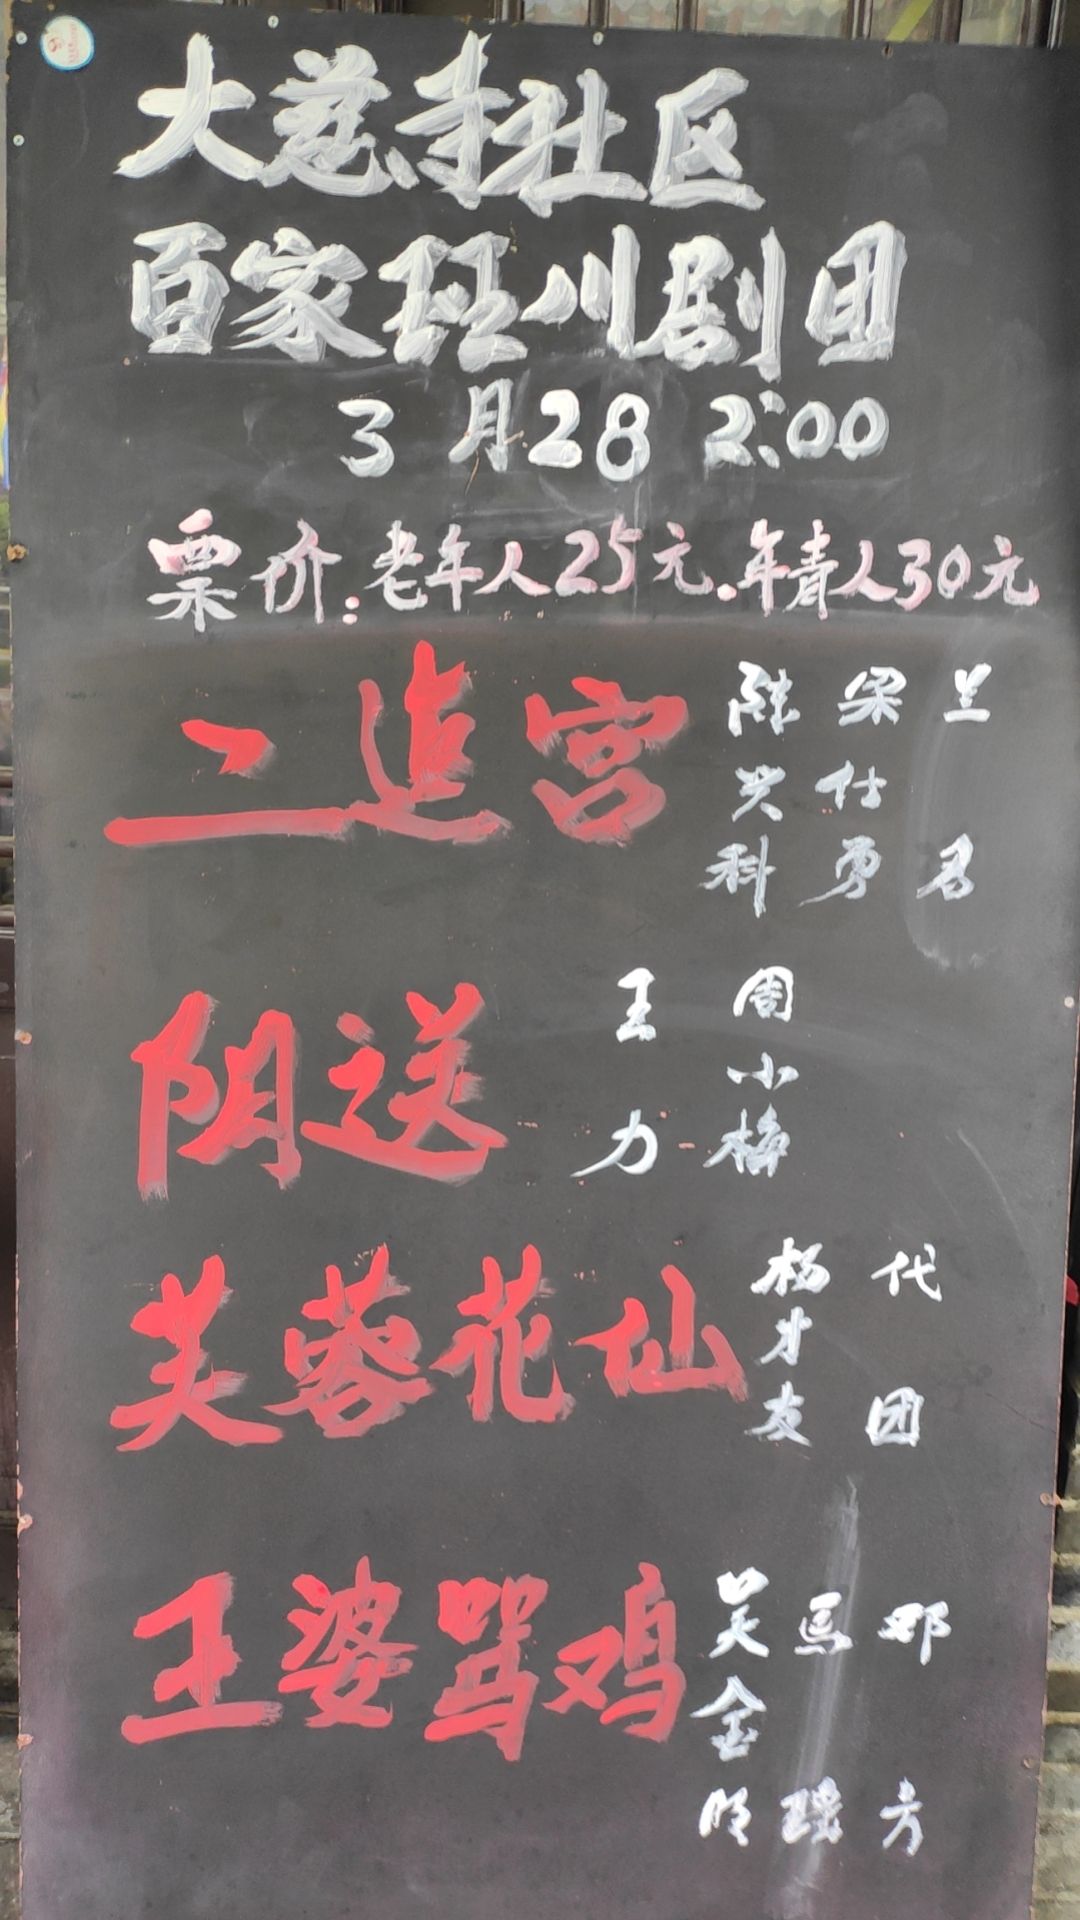 大慈寺社区
百家班川剧团
3月28 2:00
票价:老年人25元.年青人30元
二进宫 陈兴科 梁仕勇 兰君
阴送 王力 周小梅
芙蓉花仙 杨才友 代团
王婆骂鸡 吴金明 馬瑶 邓方